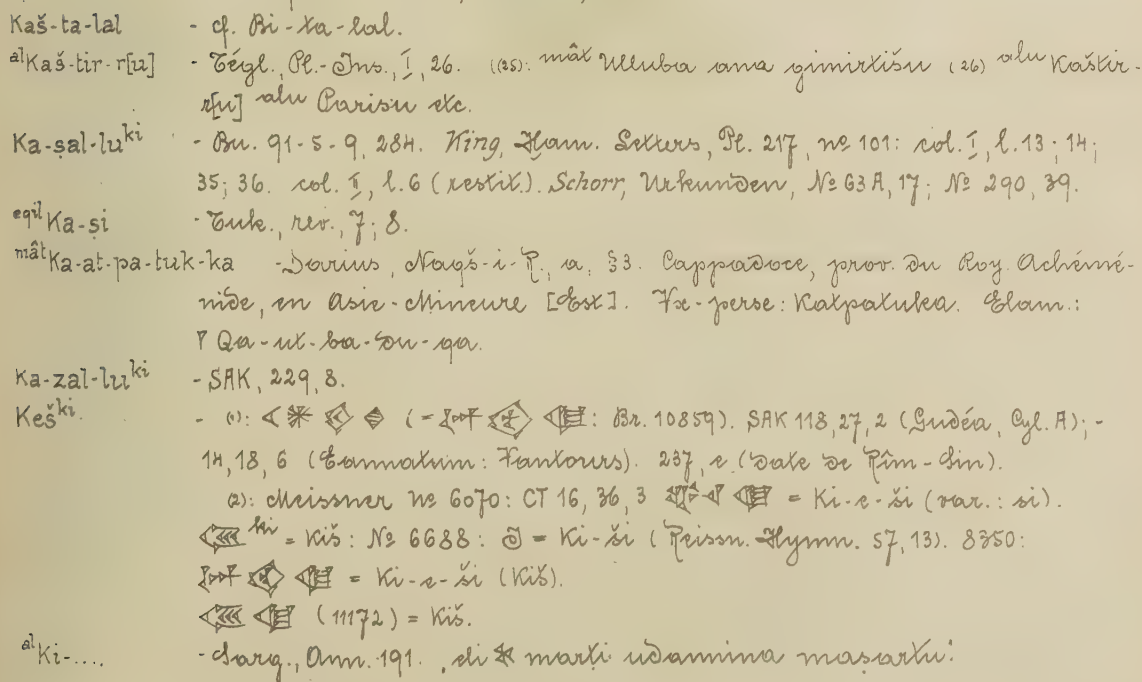 Kaš-ta-lal - cf. Bi-ta-lal.
ᵃˡKaš-tir-r[u] - Tégl., Pl.-Ins., I, 26. ((25): ᵐᵃ̂ᵗ Ulluba ana gimirtišu (26) ᵃˡᵘ Kaštir-
r[u] ᵃˡᵘ Parisu etc.
Ka-ṣal-luᵏⁱ - Bu. 91-5-9, 284. King, Ham. Letters, Pl. 217, nº 101: col. I, l. 13; 14;
35; 36. col. II, l. 6 (restit.). Schorr, Urkunden, Nº 63A, 17; Nº 290, 39.
ᵉqⁱˡKa-ṣi - Tuk., rev., 7; 8.
ᵐᵃ̂ᵗKa-at-pa-tuk-ka - Darius, Naqš-i-R., a, §3. Cappadoce, prov. du Roy. Achémé-
nide, en Asie-Mineure [Est]. Vx-perse: Katpatuka. Elam.:
Qa-ut-ba-du-qa.
Ka-zal-luᵏⁱ - SAK, 229, 8.
Kešᵏⁱ. - (1): (= : Br. 10859). SAK 118, 27, 2 (Gudéa, Cyl. A); -
14, 18, 6 (Eannatum: Vautours). 237, e (Date de Rîm-Sin).
(2): Meissner nº 6070: CT 16, 36, 3 = Ki-e-ši (var.: si).
ᵏⁱ = Kiš: Nº 6688: = Ki-ši (Reissn. Hymn. 57, 13). 8350:
= Ki-e-ši (Kiš).
(11172) = Kiš.
ᵃˡKi-.... - Sarg., Ann. 191. eli marti udannina maṣartu: